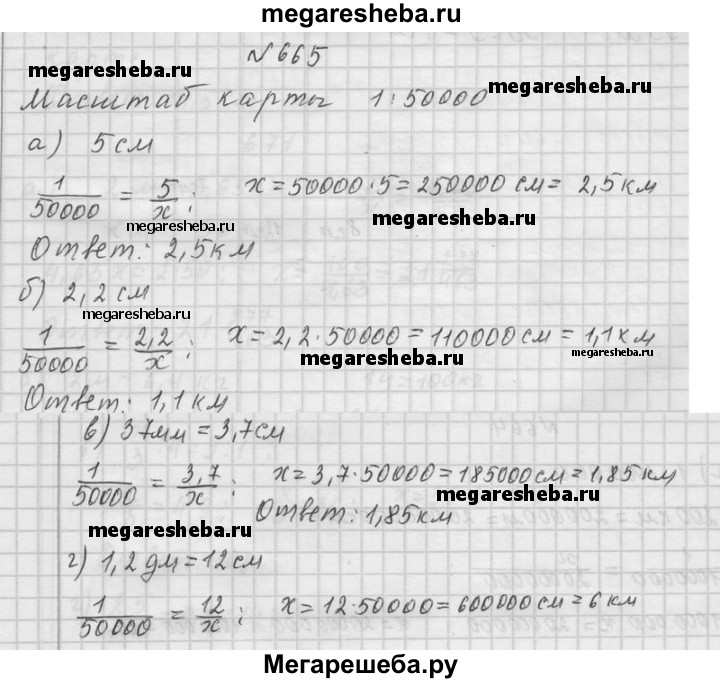 megaresheba.ru
№665
megaresheba.ru
Масштаб карты 1:50000
megaresheba.ru
а) 5 см
1/50000 = 5/x; x = 50000·5 = 250000 см = 2,5 км
megaresheba.ru
megaresheba.ru
Ответ: 2,5 км
б) 2,2 см
megaresheba.ru
1/50000 = 2,2/x; x = 2,2·50000 = 110000 см = 1,1 км
megaresheba.ru
megaresheba.ru
Ответ: 1,1 км
в) 37мм = 3,7см
1/50000 = 3,7/x; x = 3,7·50000 = 185000 см = 1,85 км
megaresheba.ru
Ответ: 1,85 км
megaresheba.ru
г) 1,2 дм = 12 см
1/50000 = 12/x; x = 12·50000 = 600000 см = 6 км
megaresheba.ru
Мегарешеба.ру